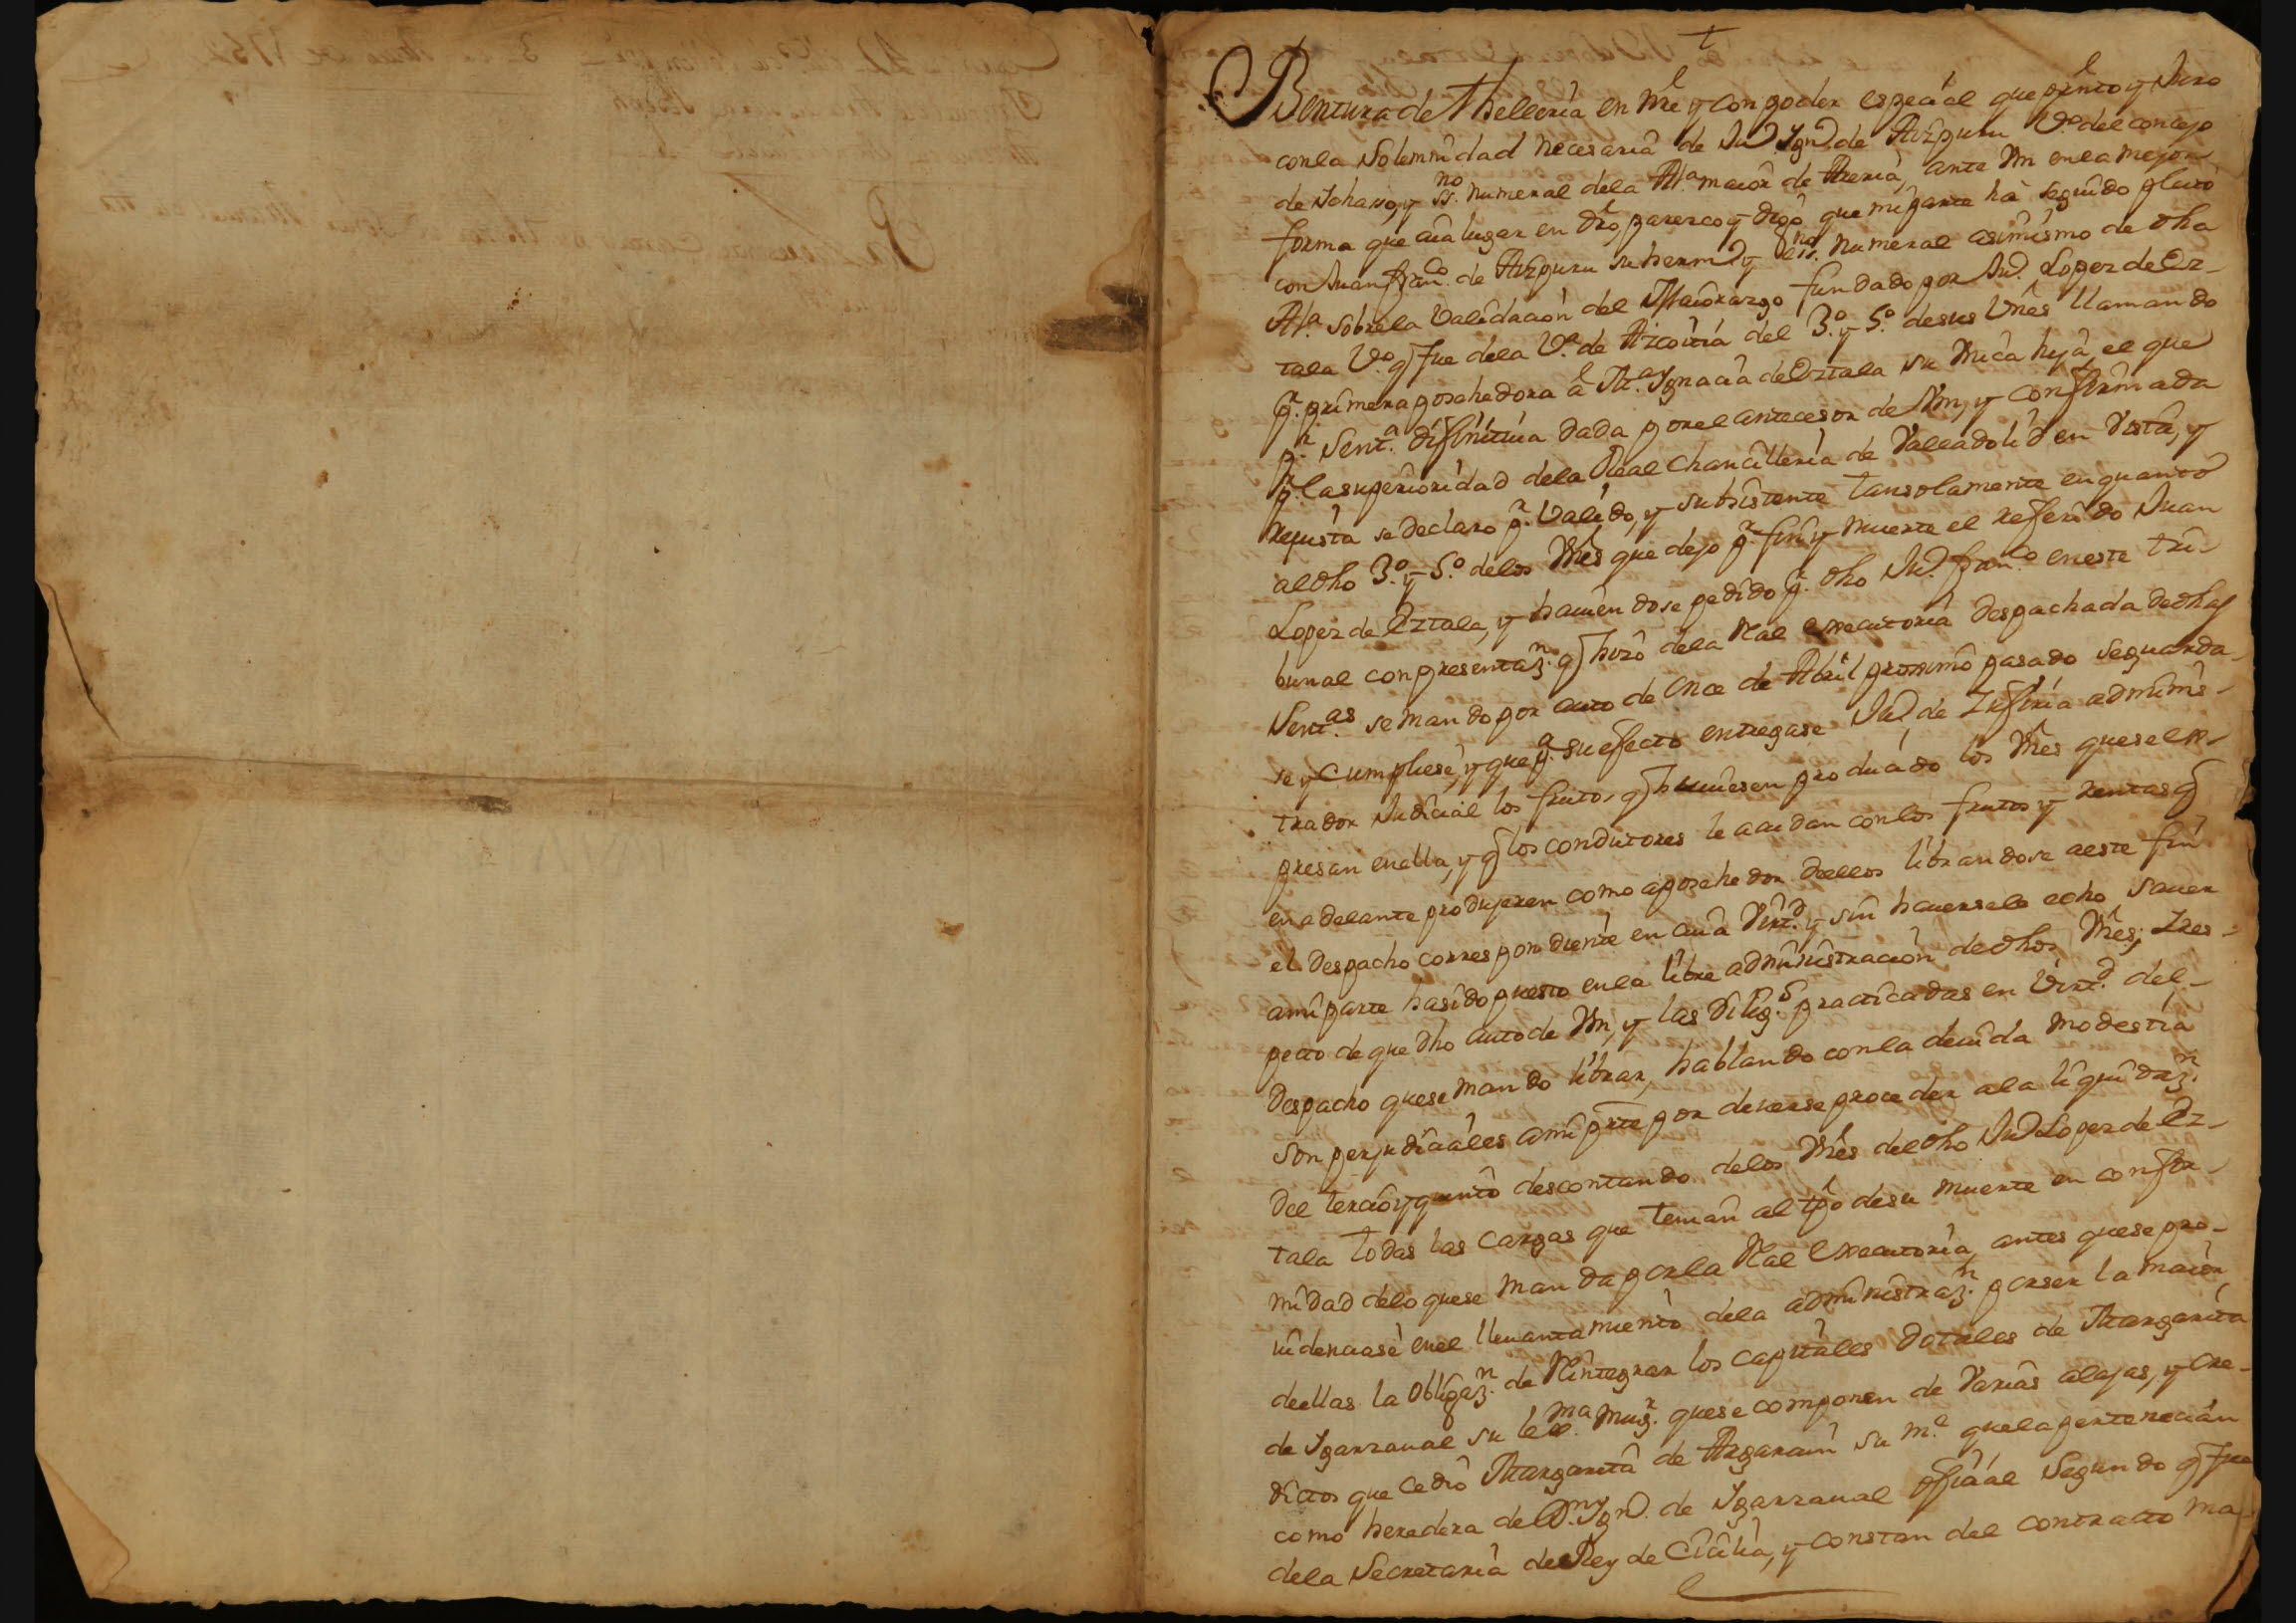 t
Bentura de Thelleria en nre y con poder especial que pnto y Juro
con la Solemnidad necesaria de Ju.º Ygn.º de Aizpuru V.º del concejo
de Ichaso, y ss.no numeral dela Al.a maior de Areria, ante Vm en la mejor
forma que aia lugar en dro, parezco y digo que mi parte ha seguido pleito
con Juan Fran.co de Aizpuru su herm.º y ess.no numeral asimismo de dha
Al.a sobre la Validacion del Maiorazgo fundado por Ju.º Lopez de Ez-
tala V.º q fue dela V.a de Azcoitia del 3.º y 5.º de sus Vnes llamando
p.r primera posehedora a M.a Ygnacia de Eztala su Unica hija, el que
p.r Sent.a difinitiva dada por el antecesor de Vm, y confirmada
p.r la superioridad dela Real Chancilleria de Valladolid en Vista, y
Revista se declaro p.r Valido, y subsistente tan solamente en quanto
al dho 3.º y 5.º delos Vnes que dejo p.r fin y muerte el referido Juan
Lopez de Eztala, y haviendose pedido p.r dho Ju.º Fran.co en este tri-
bunal con presentaz.n q hizo dela Real executoria despachada de dhas
Sent.as se mando por auto de Once de Abril proximo pasado se guarda-
se y Cumpliese, y que p.a su efecto entregase Ju.º de Zufiria adminis-
trador Judicial los frutos q huviesen producido los Vnes que se ex-
presan en ella, y q los conductores le acudan con los frutos y rentas q
en adelante produjeren como a posehedor dellos librandose a este fin
el despacho correspondiente en cuia Virt.d y sin haversele echo saver
a mi parte ha sido puesto en la libre administracion de dhos Vnes; Res-
pecto de que dho auto de Vm, y las dilig.s practicadas en Virt.d del
despacho que se mando librar, hablando con la devida modestia
son perjudiciales a mi prte por deverse proceder ala liquidaz.n
del tercio y quinto descontando delos Vnes del dho Ju.º Lopez de Ez-
tala todas las cargas que tenian al tpo de su muerte en confor-
midad delo que se manda por la Real executoria, antes que se pro-
videnciase en el llevantamiento dela administraz.n por ser la maior
de ellas la Obligaz.n de Reintegrar los capitales dotales de Margarita
de Ygarzaval su lex.ma mug.r que se componen de Varias alajas, y cre-
ditos que cedio Margarita de Argarain su m.e que la pertenecian
como heredera de D.n Ygn.º de Ygarzaval oficial Segundo q fue
dela Secretaria del Rey de Cicilia, y constan del contracto ma-